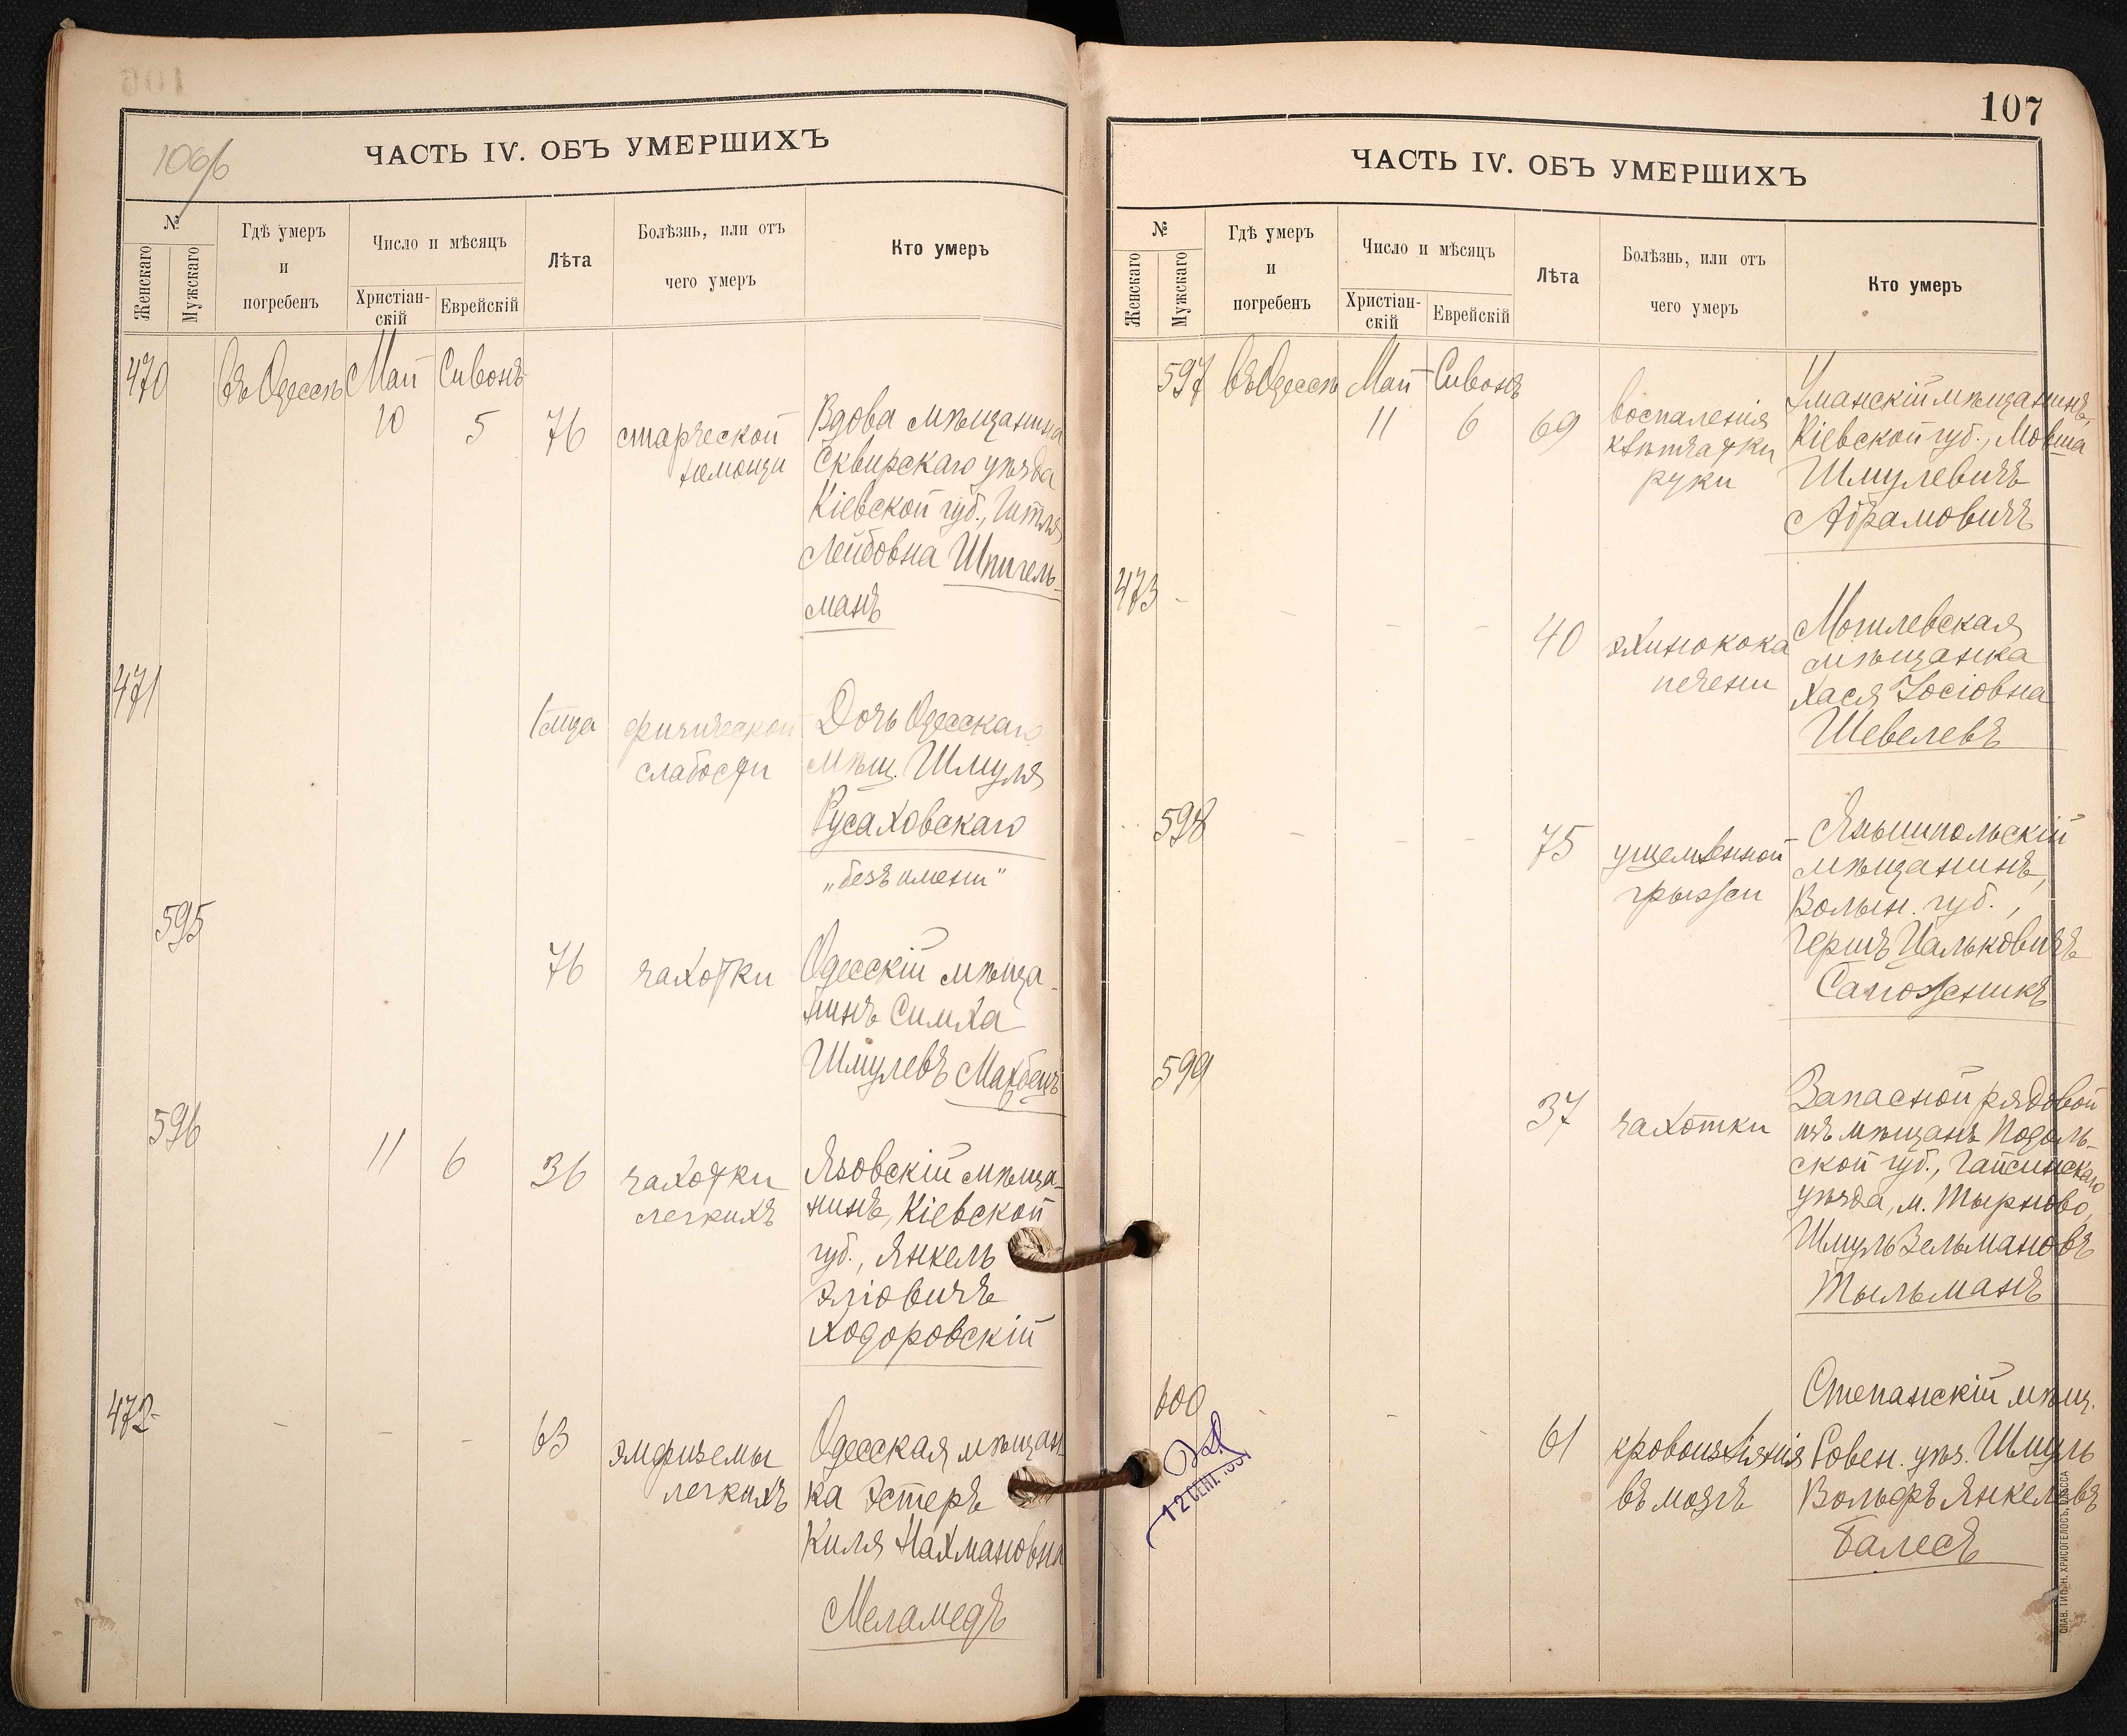 106/б
ЧАСТЬ IV. ОБЪ УМЕРШИХЪ
№
Женскаго
Мужскаго
Гдѣ умеръ
и
погребенъ
Число и мѣсяцъ
Христіан-
скій
Еврейскій
Лѣта
Болѣзнь, или отъ
чего умеръ
Кто умеръ
470 въ Одессѣ Май Сивонъ
10 5 76 старческой Вдова мѣщанина
немощи Сквирскаго уѣзда
Кіевской губ., Гитля
Лейбовна Шпигель-
манъ
471
1 мца физической Дочь Одесскаго
слабости мѣщ. Шмуля
Русаховскаго
„безъ имени"
595
76 чахотки Одесскій мѣща-
нинъ Симха
Шмулевъ
596
11 6 36 чахотки мѣща-
легкихъ нинъ, Кіевской
губ., Янкель
Эліовичъ
Ходоровскій
472
63 эмфиземы Одесская мѣщан-
легкихъ ка Эстеръ
Киля Нахмановна
Меламедъ
107
ЧАСТЬ IV. ОБЪ УМЕРШИХЪ
№
Женскаго
Мужскаго
Гдѣ умеръ
и
погребенъ
Число и мѣсяцъ
Христіан-
скій
Еврейскій
Лѣта
Болѣзнь, или отъ
чего умеръ
Кто умеръ
597 въ Одессѣ Май Сивонъ Уманскій мѣщанинъ,
11 6 69 воспаленія Кіевской губ., Мовша
клѣтчатки Шмулевичъ
руки Абрамовичъ
473
40 эхинокока Могилевская
печени мѣщанка
Хася Іосіовна
Шевелевъ
598
75 ущемленной Янышпольскій
грыжи мѣщанинъ,
Волын. губ.,
Гершъ Цальковичъ
Сапожникъ
599
37 чахотки Запасной рядовой
изъ мѣщанъ Подоль-
ской губ., Гайсинскаго
уѣзда, м. Тырново,
Шмуль Зельмановъ
Тыльманъ
600
Степанскій мѣщ.
61 кровоизліянія Ровен. уѣз. Шмуль
въ мозгъ Вольфъ Янкелевъ
Балесъ
12 СЕНТ.
СЛАВ. ТИП. Н. ХРИСОГЕЛОСЪ, ОДЕССА